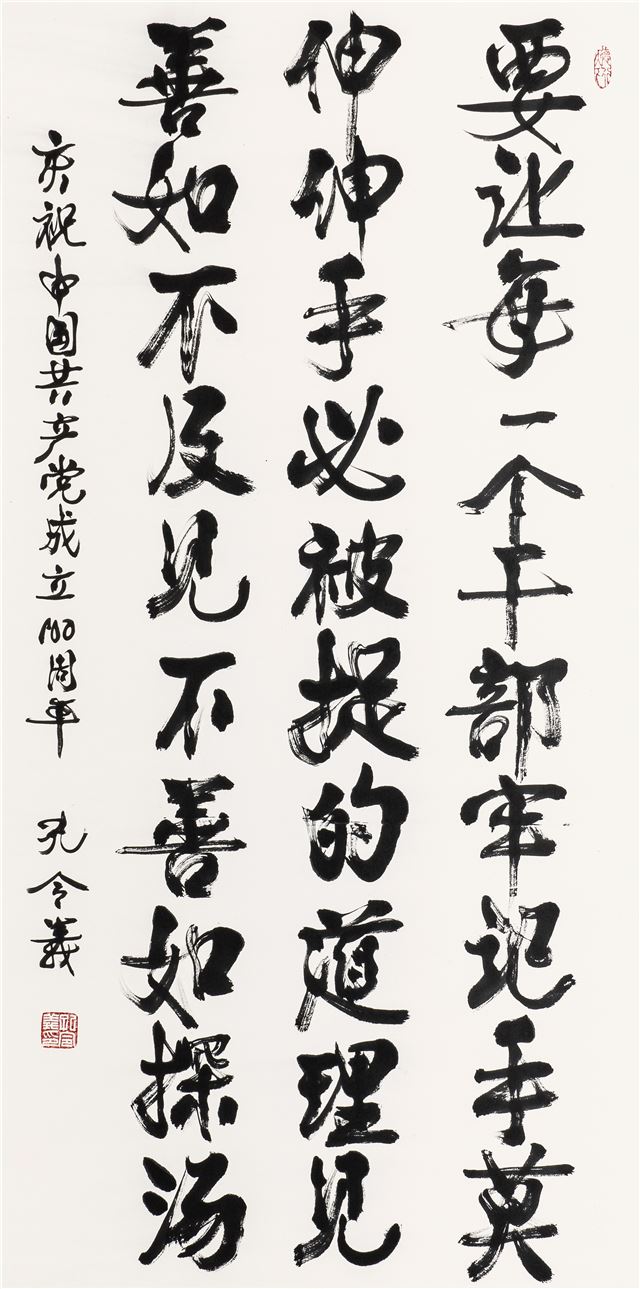 要让每一个干部牢记手莫
伸伸手必被捉的道理见
善如不及见不善如探汤
庆祝中国共产党成立100周年 孔令义